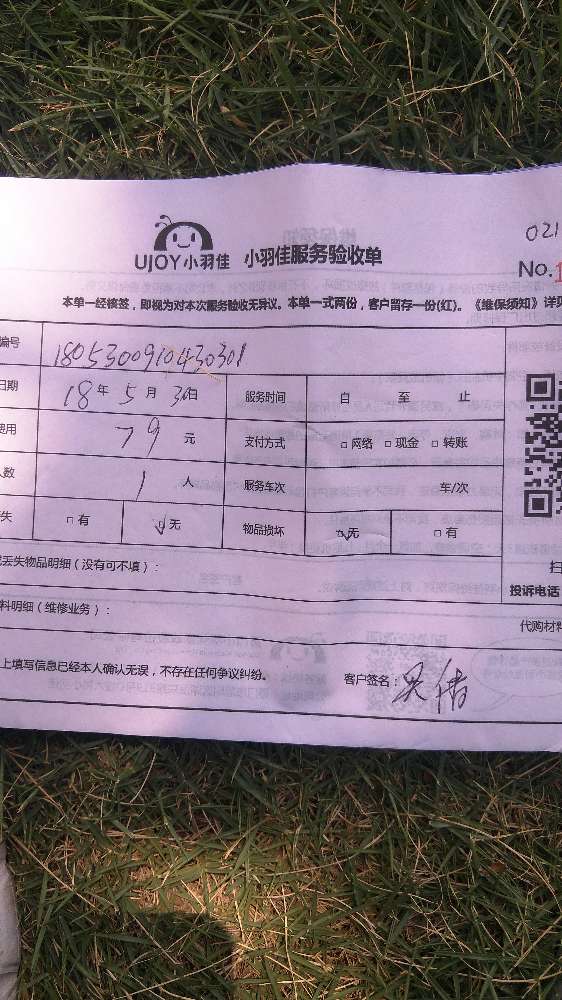 021
UJOY小羽佳 小羽佳服务验收单
No.1
本单一经核签，即视为对本次服务验收无异议。本单一式两份，客户留存一份(红)。《维保须知》详见
编号 1805300910430301
日期 18年5月30日 服务时间 自 至 止
费用 79元 支付方式 □网络 □现金 □转账
人数 1人 服务车次 车/次
失 □有 ☑无 物品损坏 ☑无 □有
丢失物品明细（没有可不填）：
投诉电话
料明细（维修业务）：
代购材料
上填写信息已经本人确认无误，不存在任何争议纠纷。 客户签名：吴倩